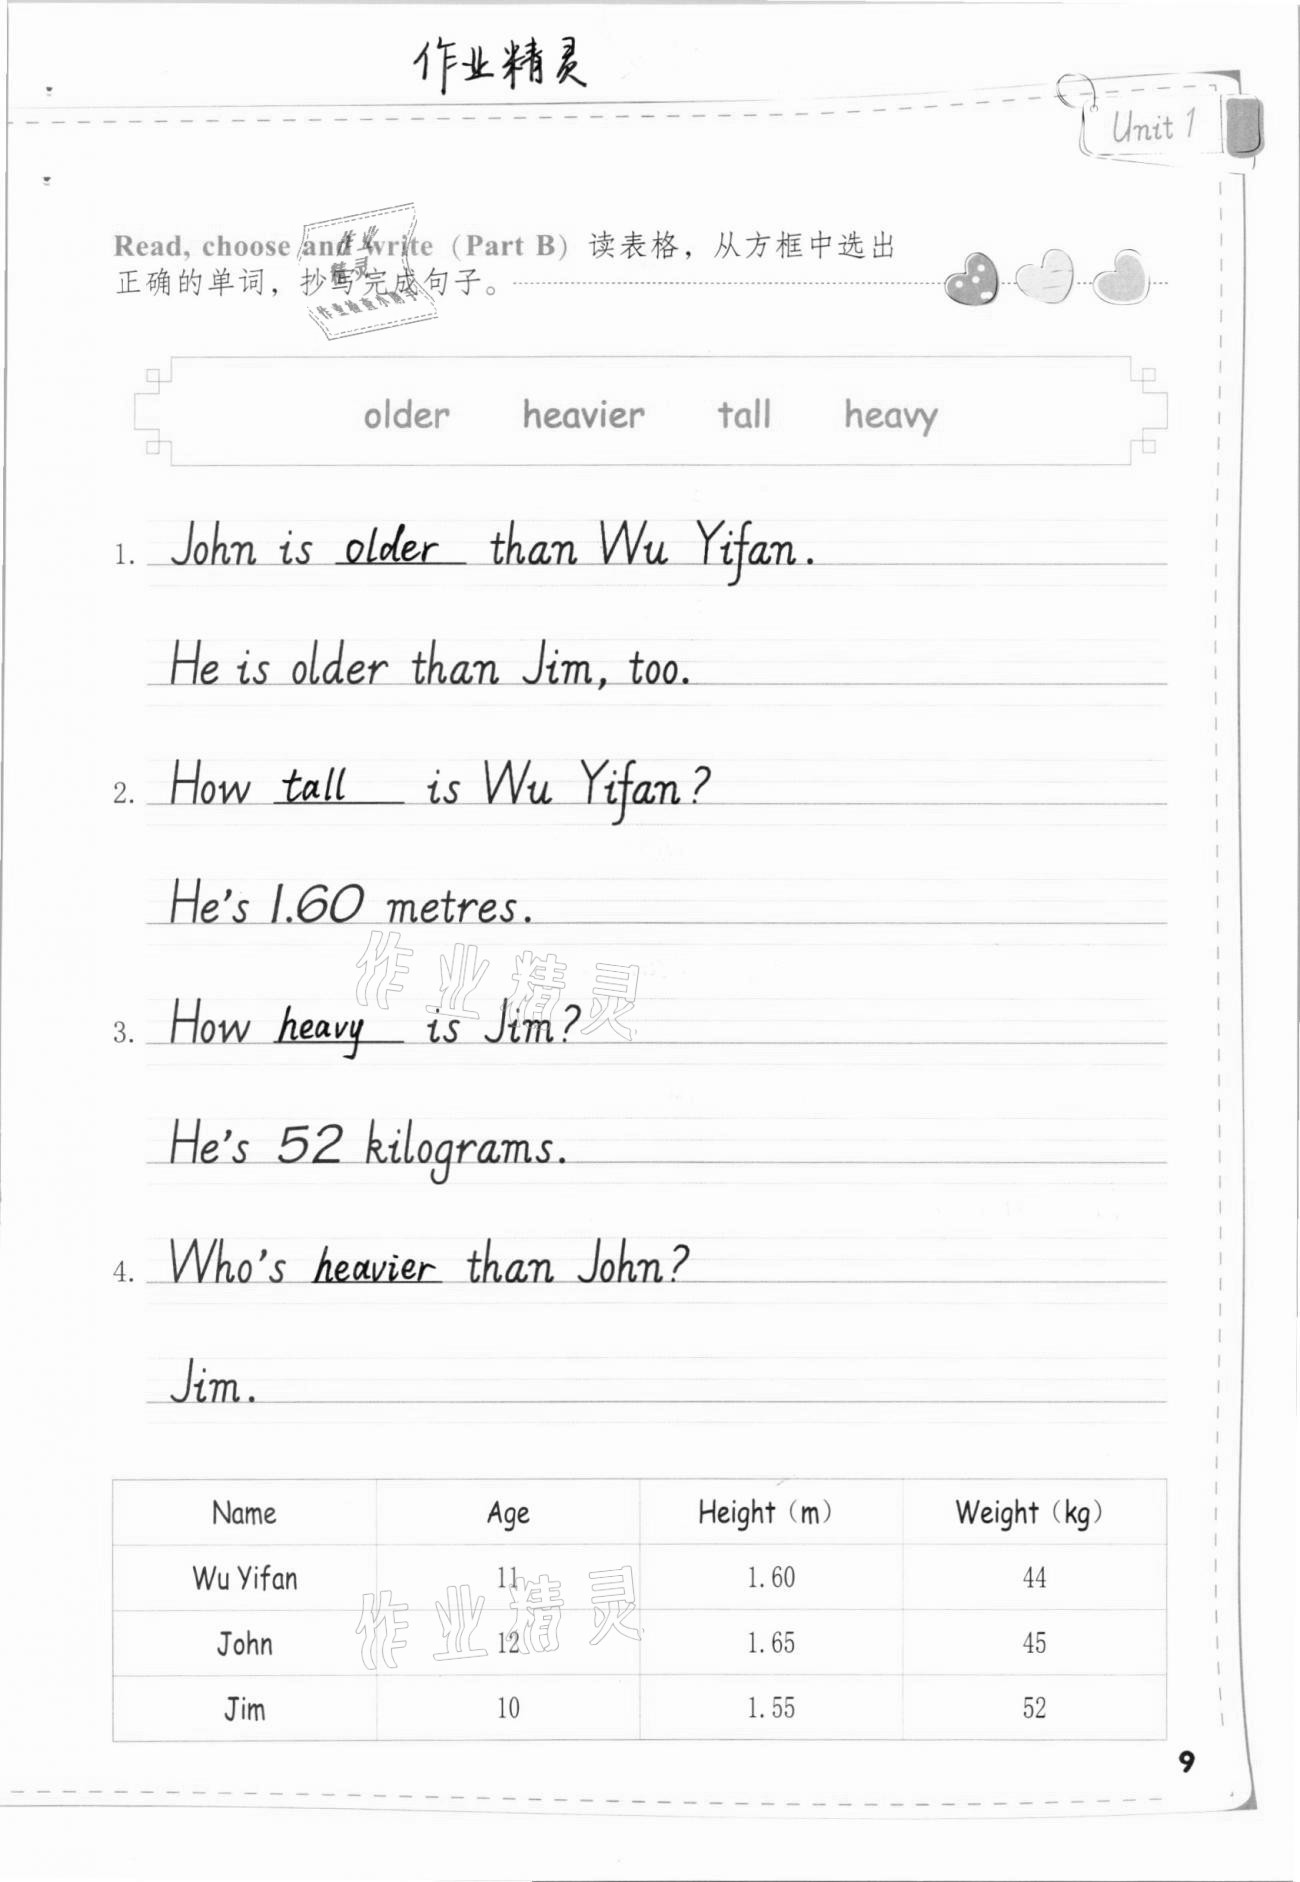 作业精灵
Unit 1
Read, choose and write (Part B) 读表格，从方框中选出
正确的单词，抄写完成句子。
作业
精灵
作业检查小助手
older heavier tall heavy
1. John is older than Wu Yifan.
He is older than Jim, too.
2. How tall is Wu Yifan?
He's 1.60 metres.
作业精灵
3. How heavy is Jim?
He's 52 kilograms.
4. Who's heavier than John?
Jim.
Name Age Height (m) Weight (kg)
Wu Yifan 11 1.60 44
作业精灵
John 12 1.65 45
Jim 10 1.55 52
9